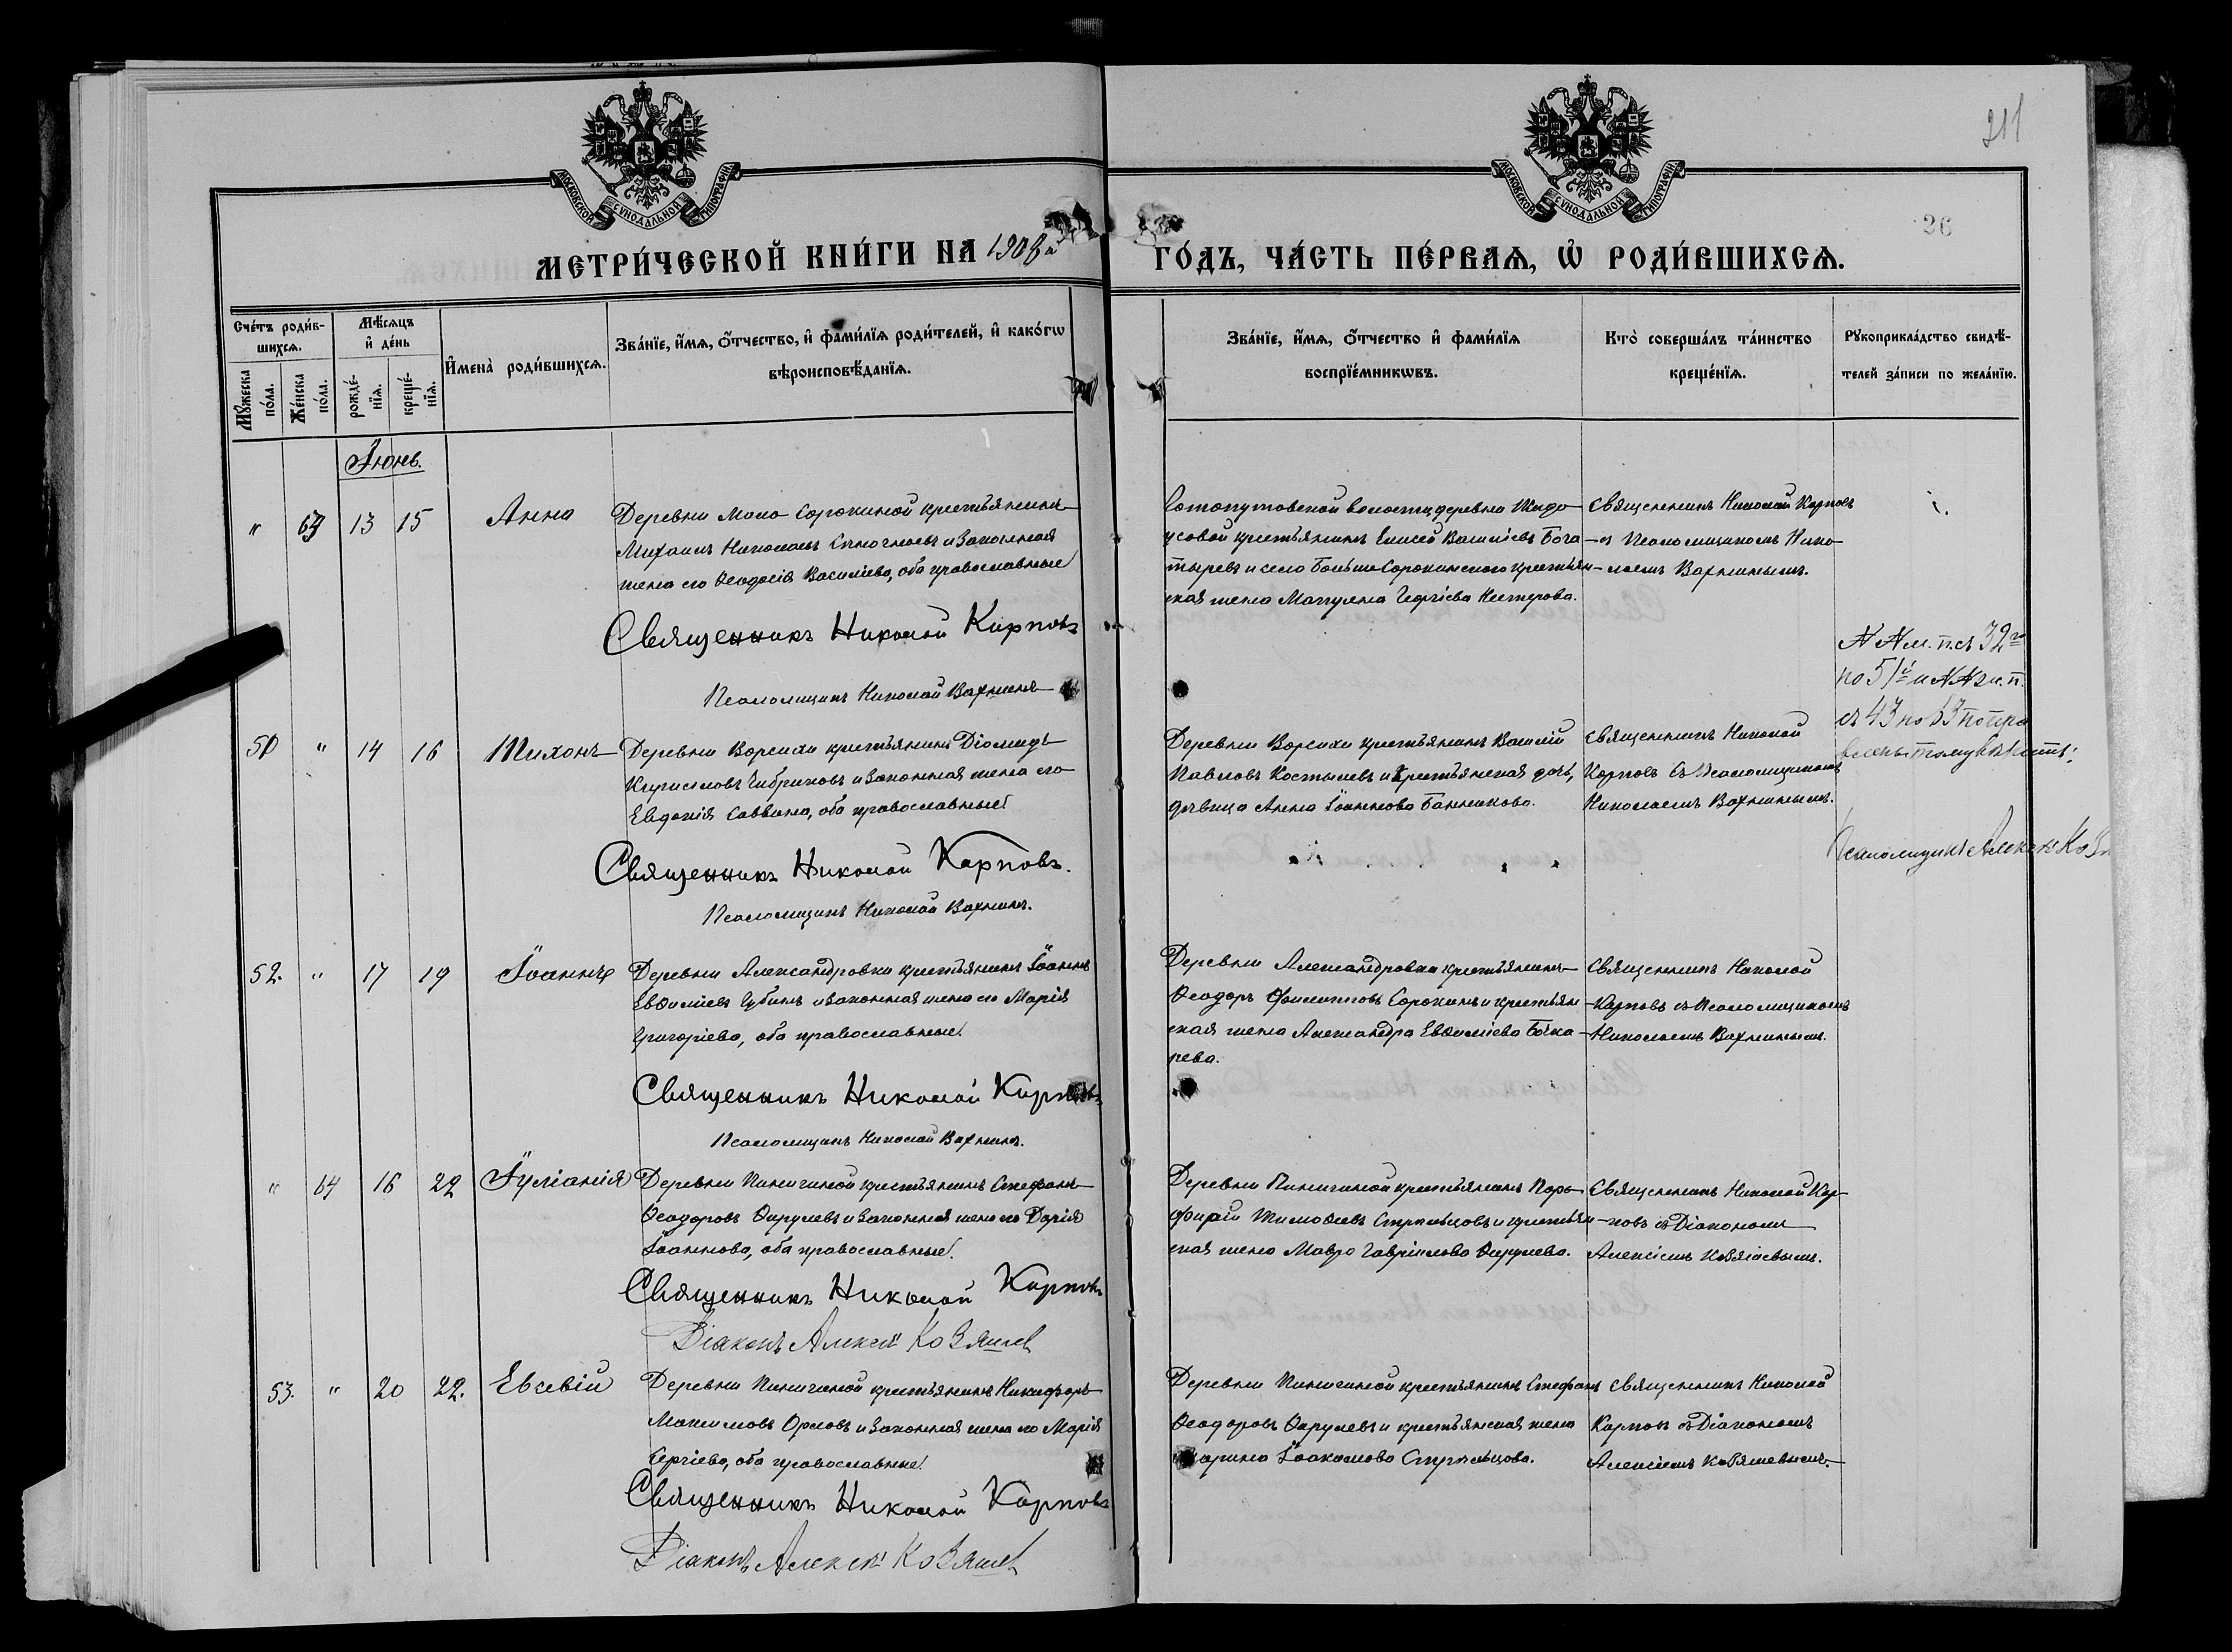 211
26
МОСКОВСКОЙ СѴНОДАЛЬНОЙ ТИПОГРАФІИ.
МОСКОВСКОЙ СѴНОДАЛЬНОЙ ТИПОГРАФІИ.
МЕТРИ́ЧЕСКОЙ КНИ́ГИ НА 1908й
ГО́ДЪ, ЧА́СТЬ ПЕ́РВАѦ, Ѡ҆ РОДИ́ВШИХСѦ.
Сче́тъ роди́в-
шихсѧ.
Мꙋ́жеска по́ла.
Же́нска по́ла.
Мѣ́сѧцъ
и҆ де́нь
рожде́-
нїѧ.
креще́-
нїѧ.
И҆мена̀ роди́вшихсѧ.
Зва́нїе, и҆́мѧ, ѻ҆́тчество, и҆ фами́лїѧ роди́телей, и҆ како́гѡ
вѣроисповѣ́данїѧ.
Зва́нїе, и҆́мѧ, ѻ҆́тчество и҆ фами́лїѧ
воспрїе́мникѡвъ.
Кто̀ соверша́лъ та́инство
креще́нїѧ.
Рꙋкоприкла́дство свидѣ́-
телей за́писи по жела́нїю.
Іюнь.
" 63 13 15 Анна
Деревни Мало-Сорокиной крестьянинъ
Михаилъ Николаевъ и законная
жена его Ѳеодосія Васильева, оба православные
Священникъ Николай Карповъ
Псаломщикъ Николай Вахнинъ
волости, деревни
крестьянинъ Елисей Васильевъ Бога-
тыревъ и село Больше-Сорокинскаго крестьян-
ская жена Георгіева Нестерова.
Священникъ Николай Карповъ
съ Псаломщикомъ Нико-
лаемъ Вахнинымъ.
51 " 14 16 Тихонъ
Деревни Ворсихи крестьянинъ Діомидъ
Кирилловъ Чибриковъ и законная жена его
Евдокія Саввина, оба православные
Священникъ Николай Карповъ.
Псаломщикъ Николай Вахнинъ.
Деревни Ворсихи крестьянинъ Василій
Павловъ Костылевъ и крестьянская дочь,
дѣвица Анна Іоаннова Банникова.
Священникъ Николай
Карповъ съ Псаломщикомъ
Николаемъ Вахнинымъ.
NN м. п. съ 32го
по 51й и NN ж. п.
съ 43 по 63 попра
влены, тому вѣрить;
Псаломщикъ
52. " 17 19 Іоаннъ
Деревни Александровки крестьянинъ Іоаннъ
Евѳиміевъ Губинъ и законная жена его Марія
Григоріева, оба православные.
Священникъ Николай Карповъ
Псаломщикъ Николай Вахнинъ.
Деревни Александровки крестьянинъ
Ѳеодоръ Филипповъ Сорокинъ и крестьян-
ская жена Александра Евѳиміева Бочка-
рева.
Священникъ Николай
Карповъ съ Псаломщикомъ
Николаемъ Вахнинымъ.
" 64 16 22 Іуліанія
Деревни Пинигиной крестьянинъ Стефанъ
Ѳеодоровъ и законная жена его Дарія
Іоаннова, оба православные.
Священникъ Николай Карповъ
Діаконъ Алексій Козяшев
Деревни Пинигиной крестьянинъ Пор-
фирій Тимоѳеевъ Стрѣльцовъ и крестьян-
ская жена Мавра Гавріилова
Священникъ Николай Кар-
повъ съ Діакономъ
Алексіемъ Козяшевымъ.
53. " 20 22. Евсевій
Деревни Пинигиной крестьянинъ Никифоръ
Максимовъ Орловъ и законная жена его Марія
Сергіева, оба православные
Священникъ Николай Карповъ
Діаконъ Алексій Козяшев
Деревни Пинигиной крестьянинъ Стефанъ
Ѳеодоровъ и крестьянская жена
Марина Іоакимова Стрѣльцова.
Священникъ Николай
Карповъ съ Діакономъ
Алексіемъ Козяшевымъ.